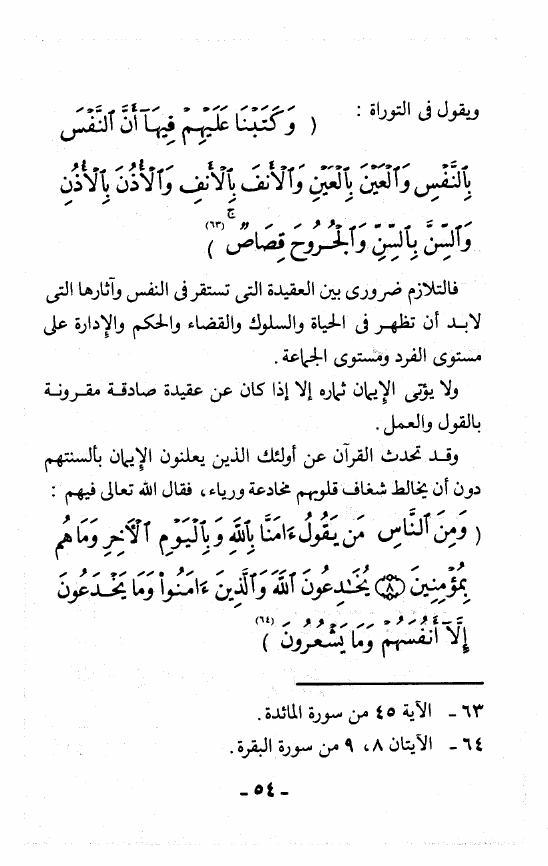 ويقول فى التوراة : ( وَكَتَبْنَا عَلَيْهِمْ فِيهَآ أَنَّ ٱلنَّفْسَ
بِٱلنَّفْسِ وَٱلْعَيْنَ بِٱلْعَيْنِ وَٱلْأَنفَ بِٱلْأَنفِ وَٱلْأُذُنَ بِٱلْأُذُنِ
وَٱلسِّنَّ بِٱلسِّنِّ وَٱلْجُرُوحَ قِصَاصٌ ۚ (٦٣) )
فالتلازم ضرورى بين العقيدة التى تستقر فى النفس وآثارها التى
لابد أن تظهر فى الحياة والسلوك والقضاء والحكم والإدارة على
مستوى الفرد ومستوى الجماعة .
ولا يؤتى الإيمان ثماره إلا إذا كان عن عقيدة صادقة مقرونة
بالقول والعمل .
وقد تحدث القرآن عن أولئك الذين يعلنون الإيمان بألسنتهم
دون أن يخالط شغاف قلوبهم مخادعة ورياء ، فقال الله تعالى فيهم :
( وَمِنَ ٱلنَّاسِ مَن يَقُولُ ءَامَنَّا بِٱللَّهِ وَبِٱلْيَوْمِ ٱلْآخِرِ وَمَا هُم
بِمُؤْمِنِينَ (٨) يُخَٰدِعُونَ ٱللَّهَ وَٱلَّذِينَ ءَامَنُوا۟ وَمَا يَخْدَعُونَ
إِلَّآ أَنفُسَهُمْ وَمَا يَشْعُرُونَ (٦٤) )
٦٣ - الآية ٤٥ من سورة المائدة .
٦٤ - الآيتان ٨ ، ٩ من سورة البقرة .
- ٥٤ -